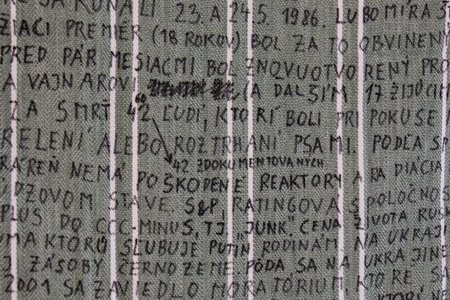 SA KONALI 23. A 24.5. 1986. ĽUBOMÍRA Š
ŽIACI PREMIÉR (18 ROKOV) BOL ZA TO OBVINENÝ
PRED PÁR MESIACMI BOL ZNOVUOTVORENÝ PRO
A VAJNAROVI A ĎALŠÍM 17 ŽIJÚCIM
ZA SMRŤ 42 ĽUDÍ, KTORÍ BOLI PRI POKUSE
RELENÍ ALEBO ROZTRHANÍ PSAMI. PODĽA
42 ZDOKUMENTOVANÝCH
RÁREŇ NEMÁ POŠKODENÉ REAKTORY A RADIÁCIA
DZOVOM STAVE. S&P, RATINGOVÁ SPOLOČNOS
PLUS DO CCC-MINUS, TJ. "JUNK". CENA ŽIVOTA RUS
MA KTORÚ SĽUBUJE PUTIN RODINÁM NA UKRAJI
ZÁSOBY ČERNOZEME PÔDA SA NA UKRAJINE
2001 SA ZAVIEDLO MORATÓRIUM KTORÉ SA